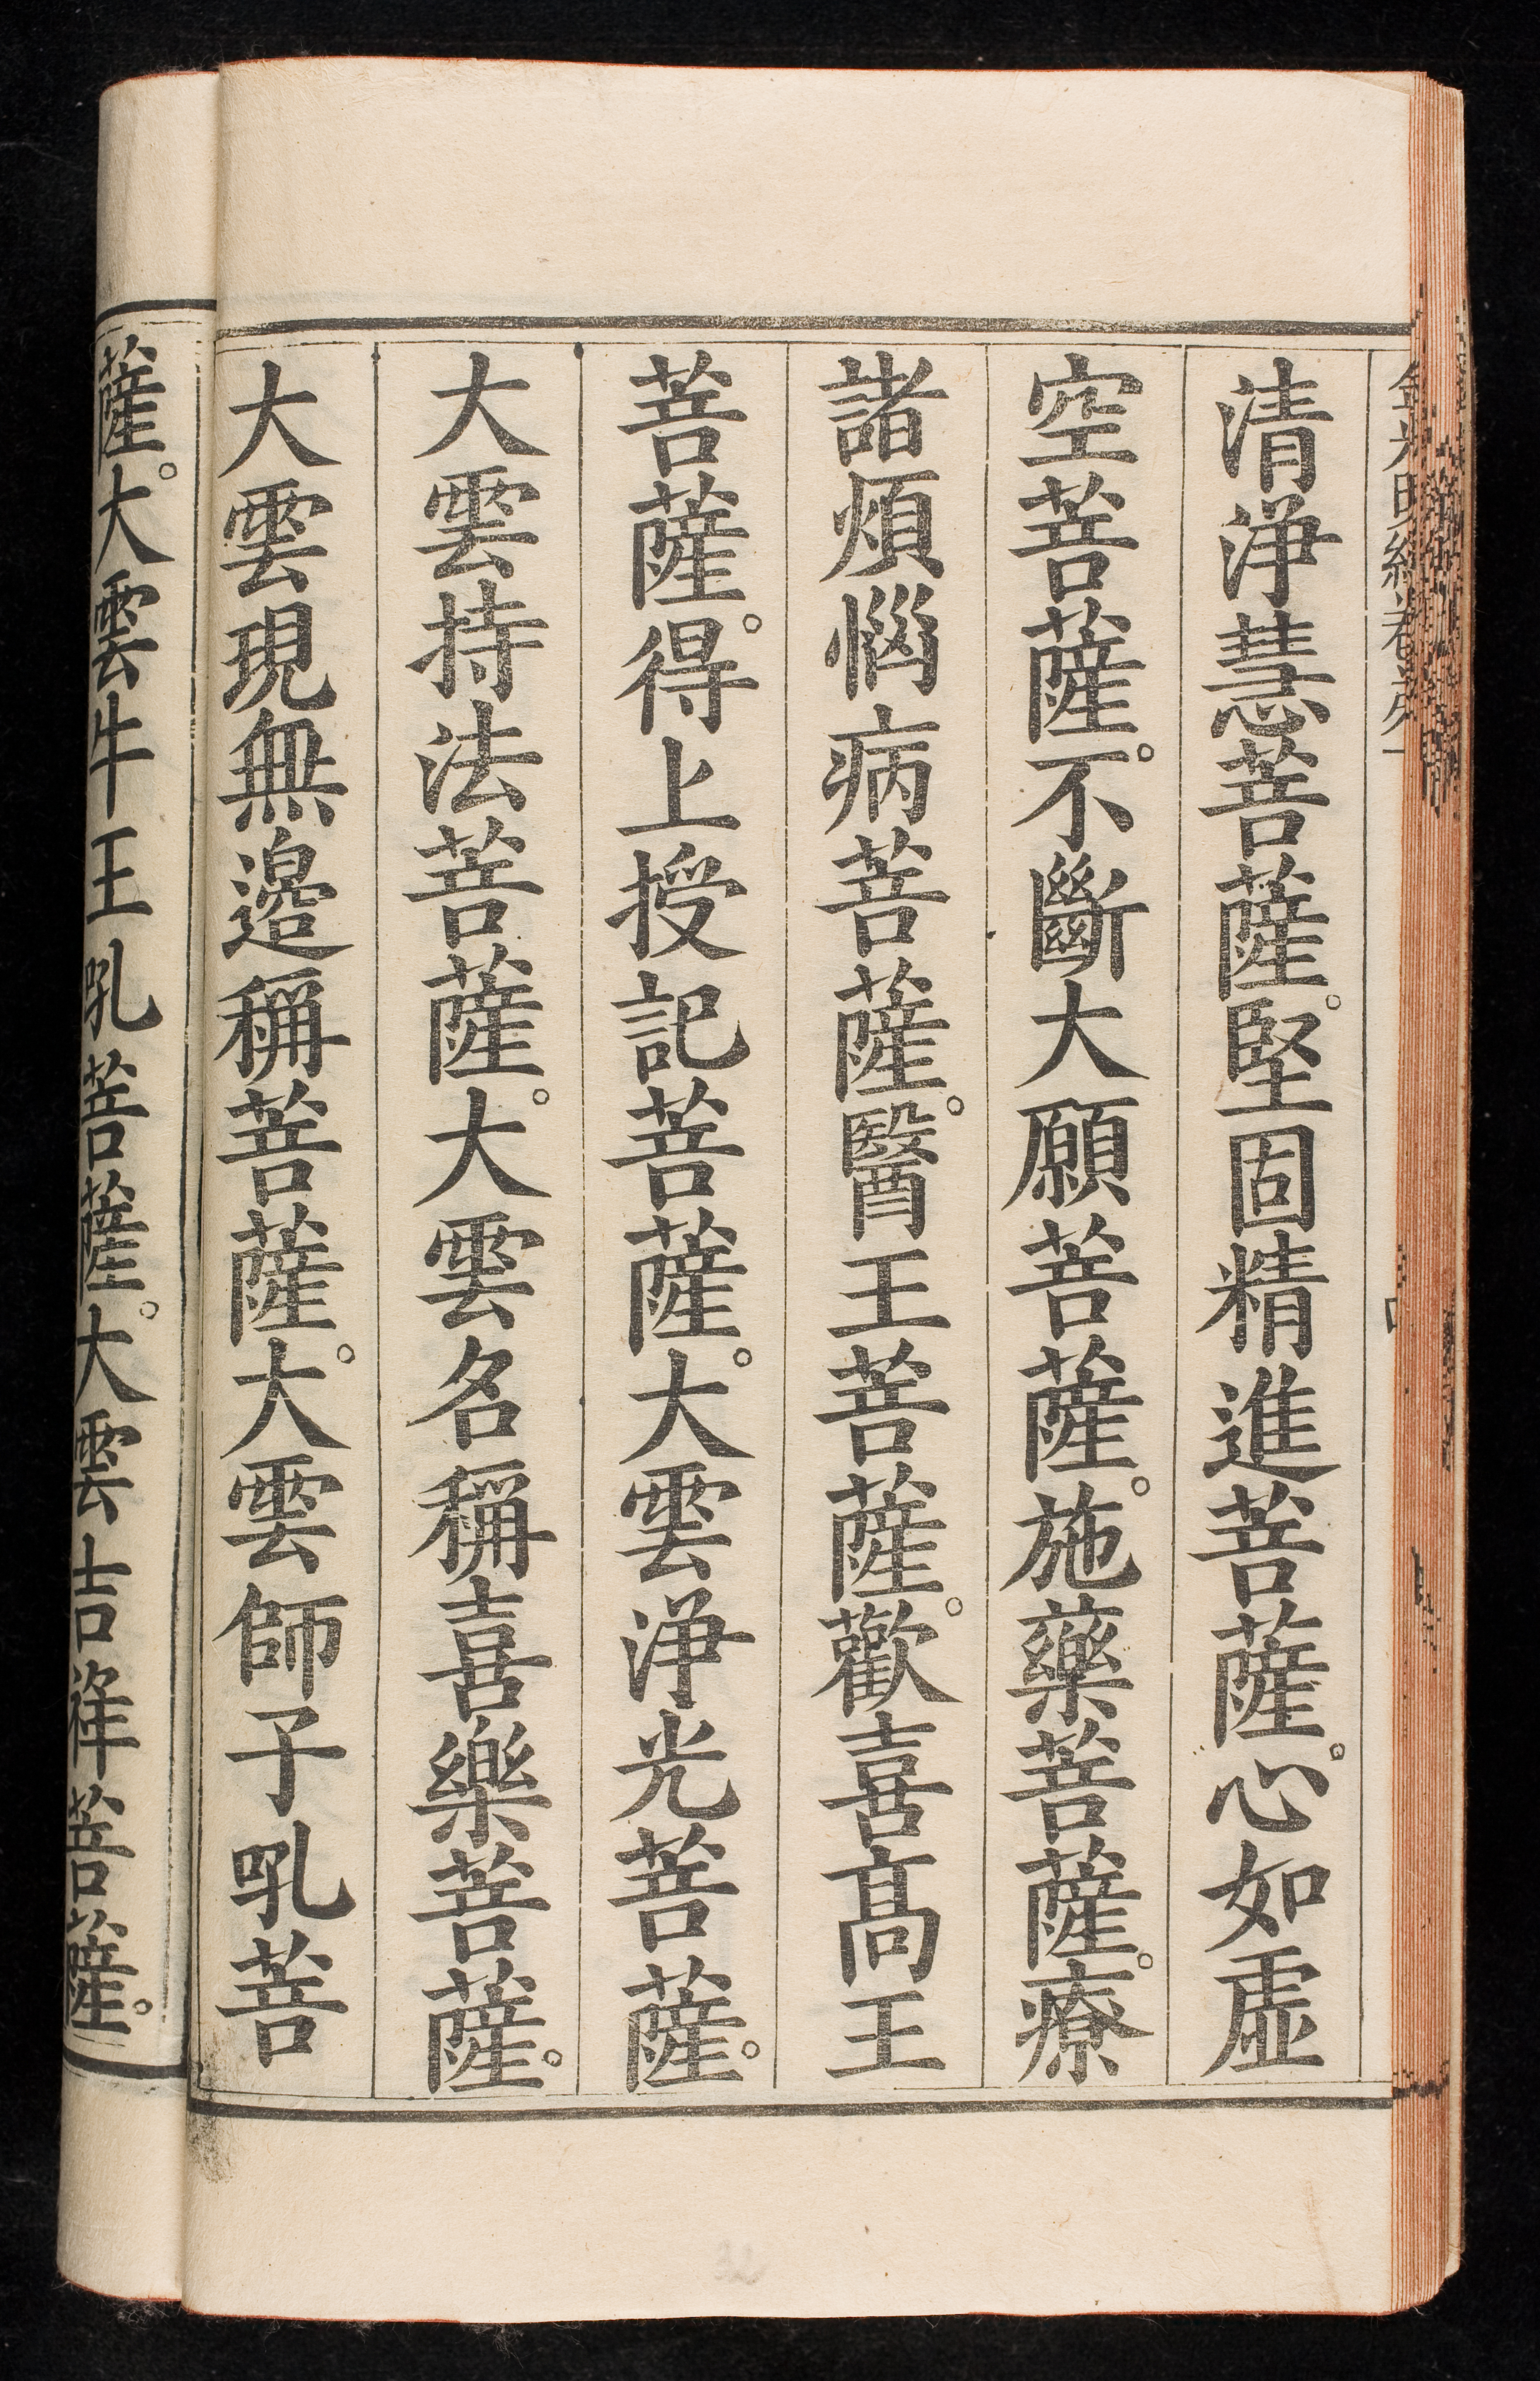 金光明經卷第一
清淨慧菩薩。堅固精進菩薩。心如虛
空菩薩。不斷大願菩薩。施藥菩薩。療
諸煩惱病菩薩。醫王菩薩。歡喜高王
菩薩。得上授記菩薩。大雲淨光菩薩。
大雲持法菩薩。大雲名稱喜樂菩薩。
大雲現無邊稱菩薩。大雲師子吼菩
薩。大雲牛王吼菩薩。大雲吉祥菩薩。